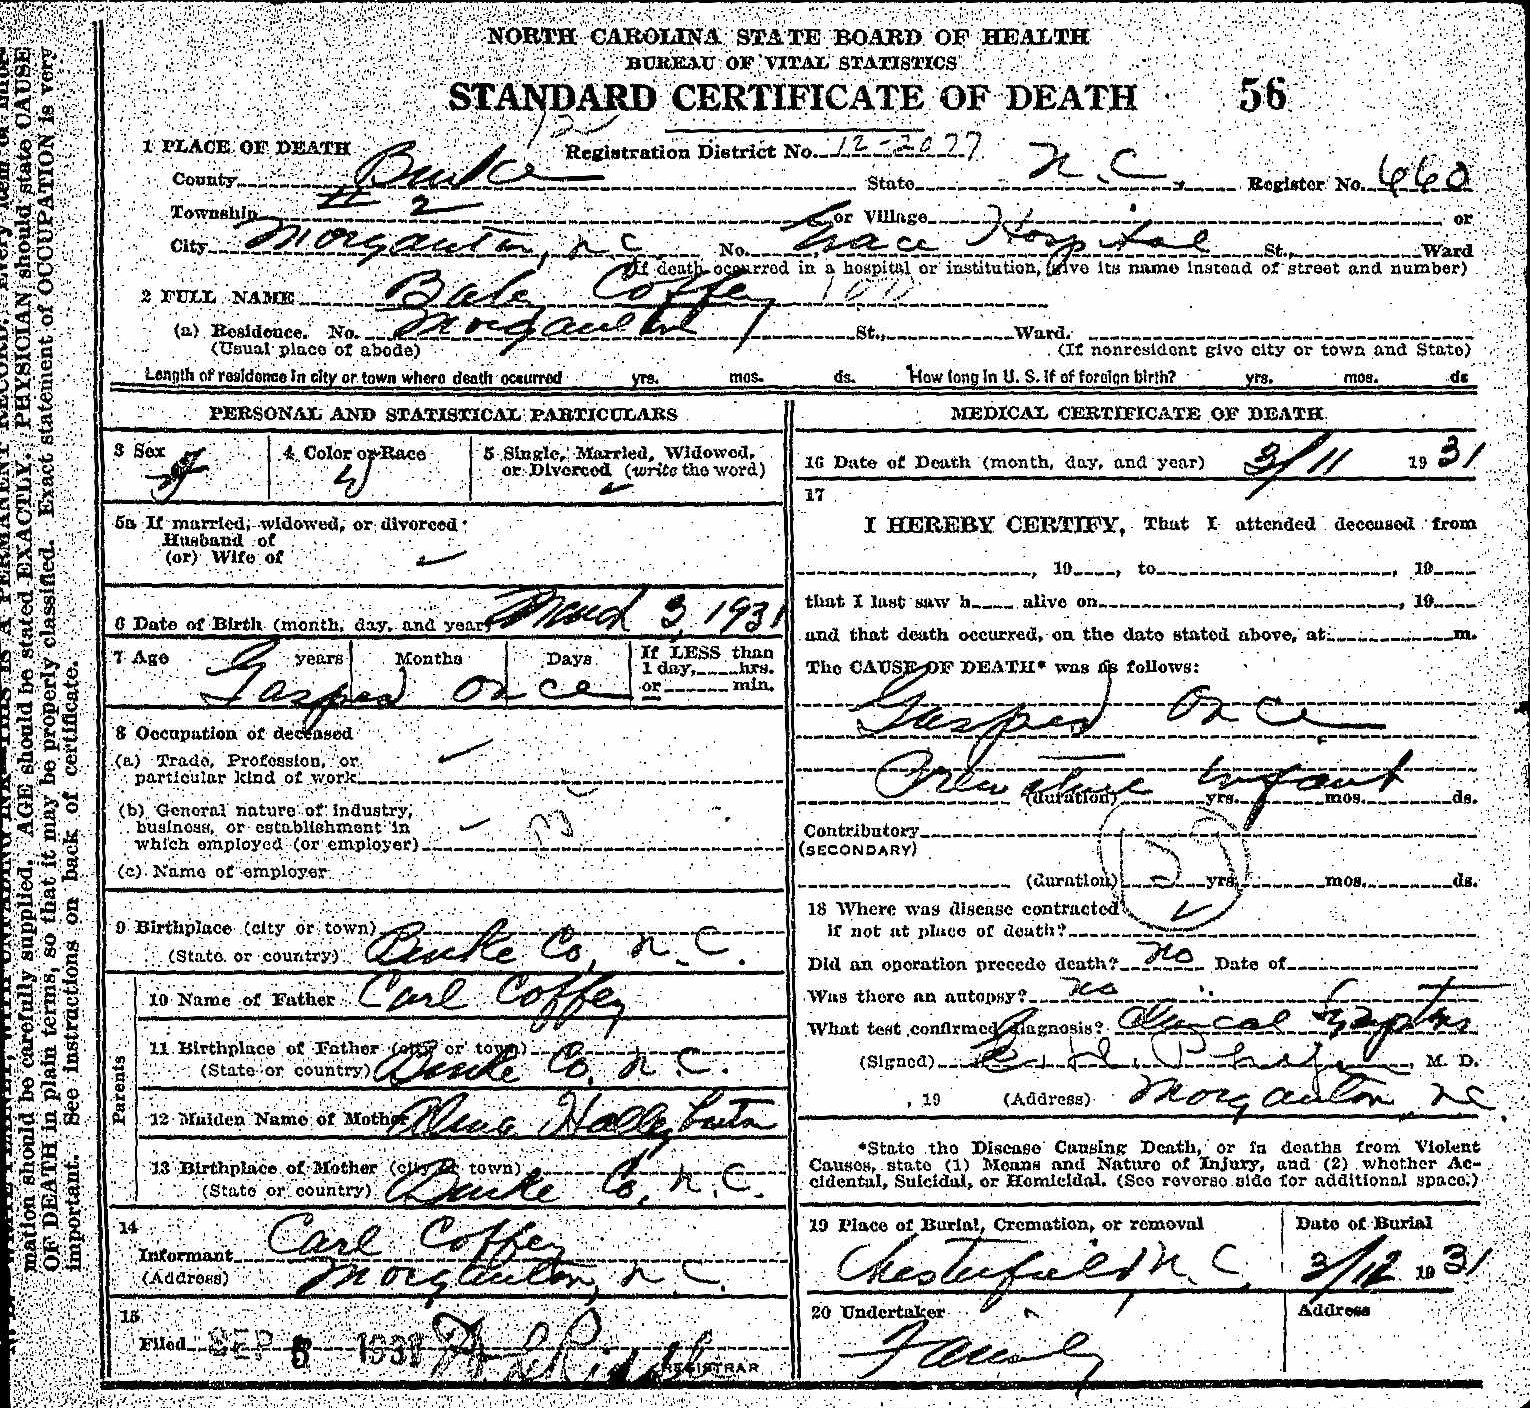 NORTH CAROLINA STATE BOARD OF HEALTH
BUREAU OF VITAL STATISTICS
STANDARD CERTIFICATE OF DEATH 56
1 PLACE OF DEATH Registration District No. 12-2077
County Burke State N.C. Register No. 660
Township # 2 or Village or
City Morganton, N C No. Grace Hospital St., Ward
(If death occurred in a hospital or institution, give its name instead of street and number)
2 FULL NAME Baby Coffey
(a) Residence. No. Morganton St., Ward.
(Usual place of abode) (If nonresident give city or town and State)
Length of residence in city or town where death occurred yrs. mos. ds. How long in U. S. if of foreign birth? yrs. mos. ds
PERSONAL AND STATISTICAL PARTICULARS
3 Sex F
4 Color or Race W
5 Single, Married, Widowed,
or Divorced (write the word)
5a If married, widowed, or divorced
Husband of
(or) Wife of
6 Date of Birth (month, day, and year) March 3, 1931
7 Age years Months Days
If LESS than
1 day, hrs.
or min.
Gasped once
8 Occupation of deceased
(a) Trade, Profession, or
particular kind of work
(b) General nature of industry,
business, or establishment in
which employed (or employer)
(c) Name of employer
9 Birthplace (city or town)
(State or country) Burke Co, N.C.
Parents
10 Name of Father Carl Coffey
11 Birthplace of Father (city or town)
(State or country) Burke Co. N.C.
12 Maiden Name of Mother Hallyburton
13 Birthplace of Mother (city or town)
(State or country) Burke Co, N.C.
14
Informant Carl Coffey
(Address) Morganton, N C.
15
Filed SEP 5 1931
REGISTRAR
MEDICAL CERTIFICATE OF DEATH
16 Date of Death (month, day, and year) 3/11 1931
17
I HEREBY CERTIFY, That I attended deceased from
, 19 , to , 19
that I last saw h alive on , 19
and that death occurred, on the date stated above, at m.
The CAUSE OF DEATH* was as follows:
Gasped once
Premature Infant
(duration) yrs. mos. ds.
Contributory
(SECONDARY)
(duration) yrs. mos. ds.
18 Where was disease contracted
if not at place of death?
Did an operation precede death? no Date of
Was there an autopsy? no
What test confirmed diagnosis? Clinical Symptoms
(Signed) , M. D.
, 19 (Address) Morganton, N.C.
*State the Disease Causing Death, or in deaths from Violent
Causes, state (1) Means and Nature of Injury, and (2) whether Ac-
cidental, Suicidal, or Homicidal. (See reverse side for additional space.)
19 Place of Burial, Cremation, or removal Date of Burial
Chesterfield, N.C. 3/12 1931
20 Undertaker Address
Family
mation should be carefully supplied. AGE should be stated EXACTLY. PHYSICIAN should state CAUSE
OF DEATH in plain terms, so that it may be properly classified. Exact statement of OCCUPATION is very
important. See instructions on back of certificate.